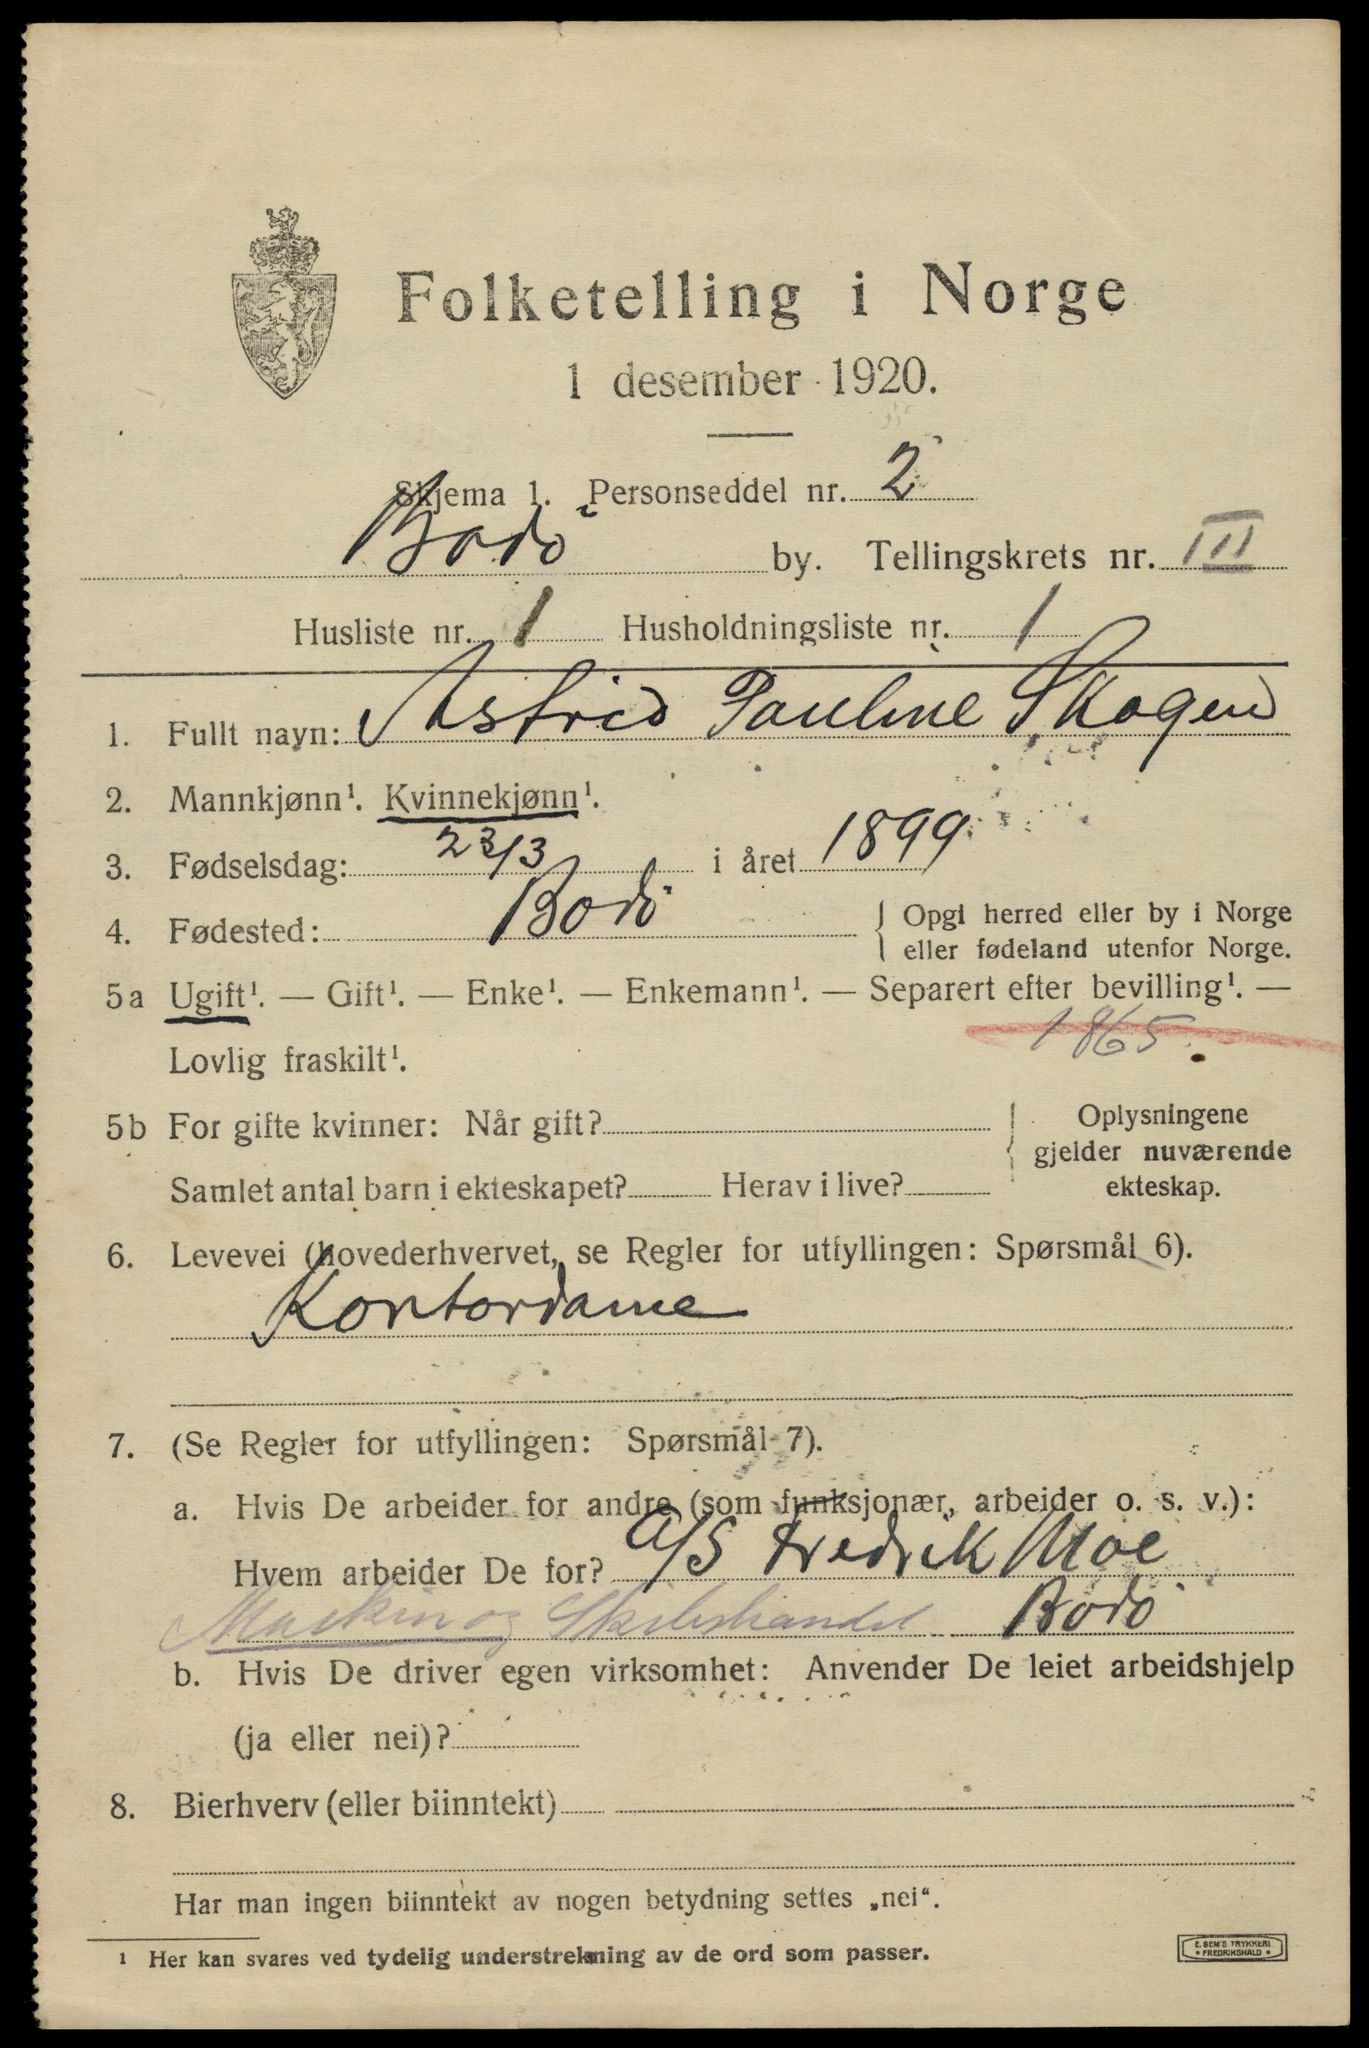 Folketelling i Norge
1 desember 1920.
Skjema 1. Personseddel nr. 2
Bodö by. Tellingskrets nr. III
Husliste nr. 1 Husholdningsliste nr. 1
1. Fullt navn: Astrid Pauline Skogen
2. Mannkjønn¹. Kvinnekjønn¹.
3. Fødselsdag: 23/3 i året 1899
4. Fødested: Bodö { Opgi herred eller by i Norge
eller fødeland utenfor Norge.
5a Ugift¹. — Gift¹. — Enke¹. — Enkemann¹. — Separert efter bevilling¹. —
1865.
Lovlig fraskilt¹.
5b For gifte kvinner: Når gift? { Oplysningene
gjelder nuværende
Samlet antal barn i ekteskapet? Herav i live? ekteskap.
6. Levevei (hovederhvervet, se Regler for utfyllingen: Spørsmål 6).
Kontordame
7. (Se Regler for utfyllingen: Spørsmål 7).
a. Hvis De arbeider for andre (som funksjonær, arbeider o. s. v.):
Hvem arbeider De for? A/S Fredrik Moe
Maskin og Skibshandel Bodö
b. Hvis De driver egen virksomhet: Anvender De leiet arbeidshjelp
(ja eller nei)?
8. Bierhverv (eller biinntekt)
Har man ingen biinntekt av nogen betydning settes „nei“.
¹ Her kan svares ved tydelig understrekning av de ord som passer.
E. SEM'S TRYKKERI
FREDRIKSHALD